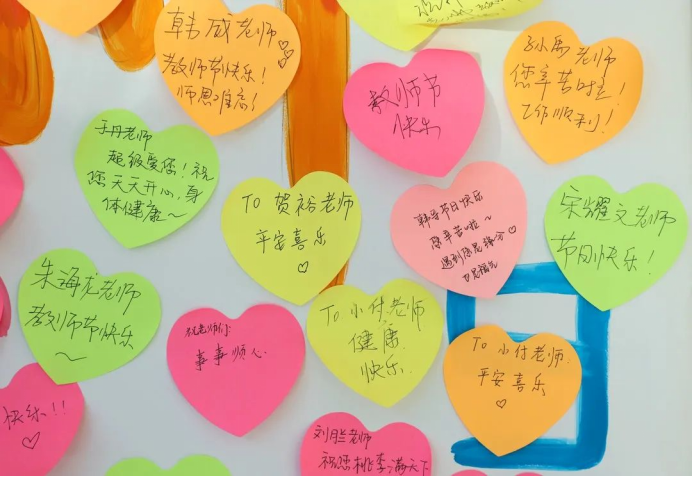 韩威老师
教师节快乐!
师恩难忘!
教师节
快乐
孙禹老师
您辛苦啦!
工作顺利!
于丹老师
超级爱您!祝
您天天开心,身
体健康~
TO 贺裕老师
平安喜乐
♡
韩导节日快乐
您辛苦啦~
遇到您是缘分
也是福气
宋耀文老师
节日快乐!
朱海龙老师
教师节快乐
~
祝老师们:
事事顺人.
To 小付老师
健康
快乐
To 小付老师.
平安喜乐
♡
快乐!!
♡
刘
老师
祝您桃李满天下